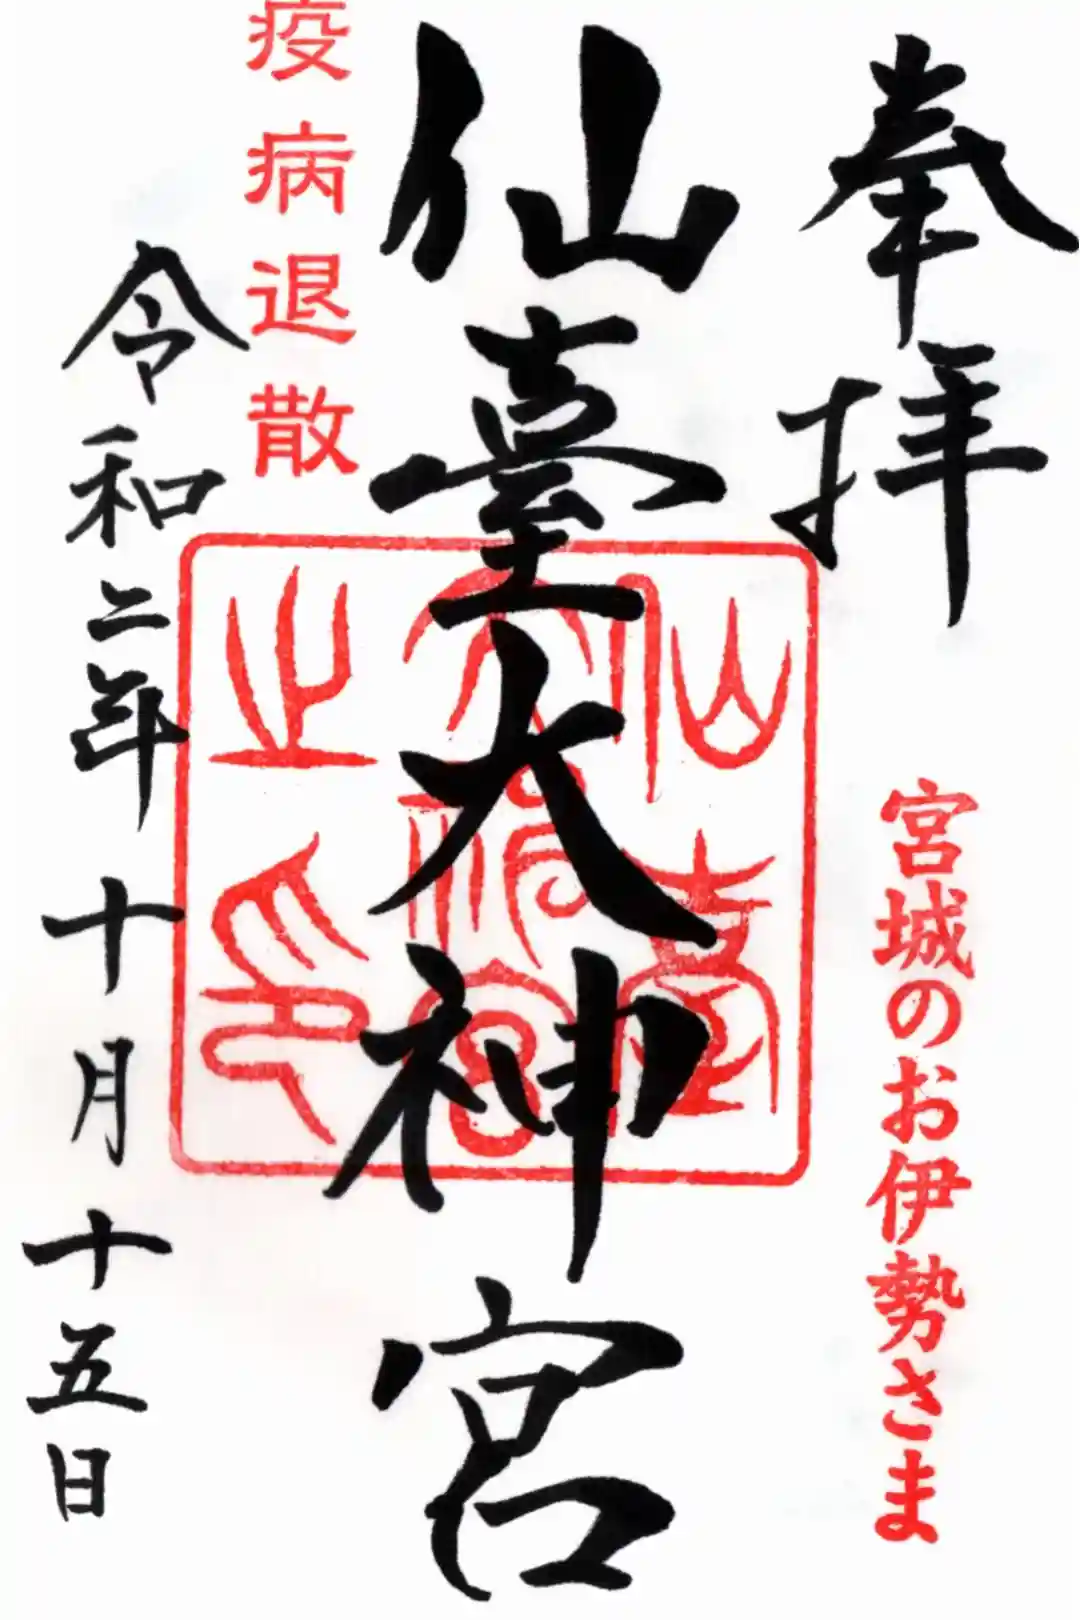 奉拝
宮城のお伊勢さま
仙臺大神宮
仙臺大神宮之印
疫病退散
令和二年十月十五日